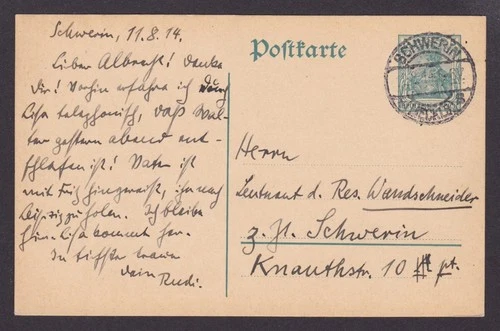 Schwerin, 11.8.14.
Lieber Albrecht! Danke
Dir! Vorhin erfahre ich durch
Lisa telephonisch, daß Wal-
ter gestern abend ent-
schlafen ist! Vater ist
mit hingereist, ihn nach
Leipzig zu holen. Ich bleibe
hier. Lisa kommt her.
In tiefster Trauer
Dein Rudi.
Postkarte
SCHWERIN
(MECKLB)
Herrn
Leutnant d. Res. Wandschneider
z. Zt. Schwerin
Knaudtstr. 10 pt.